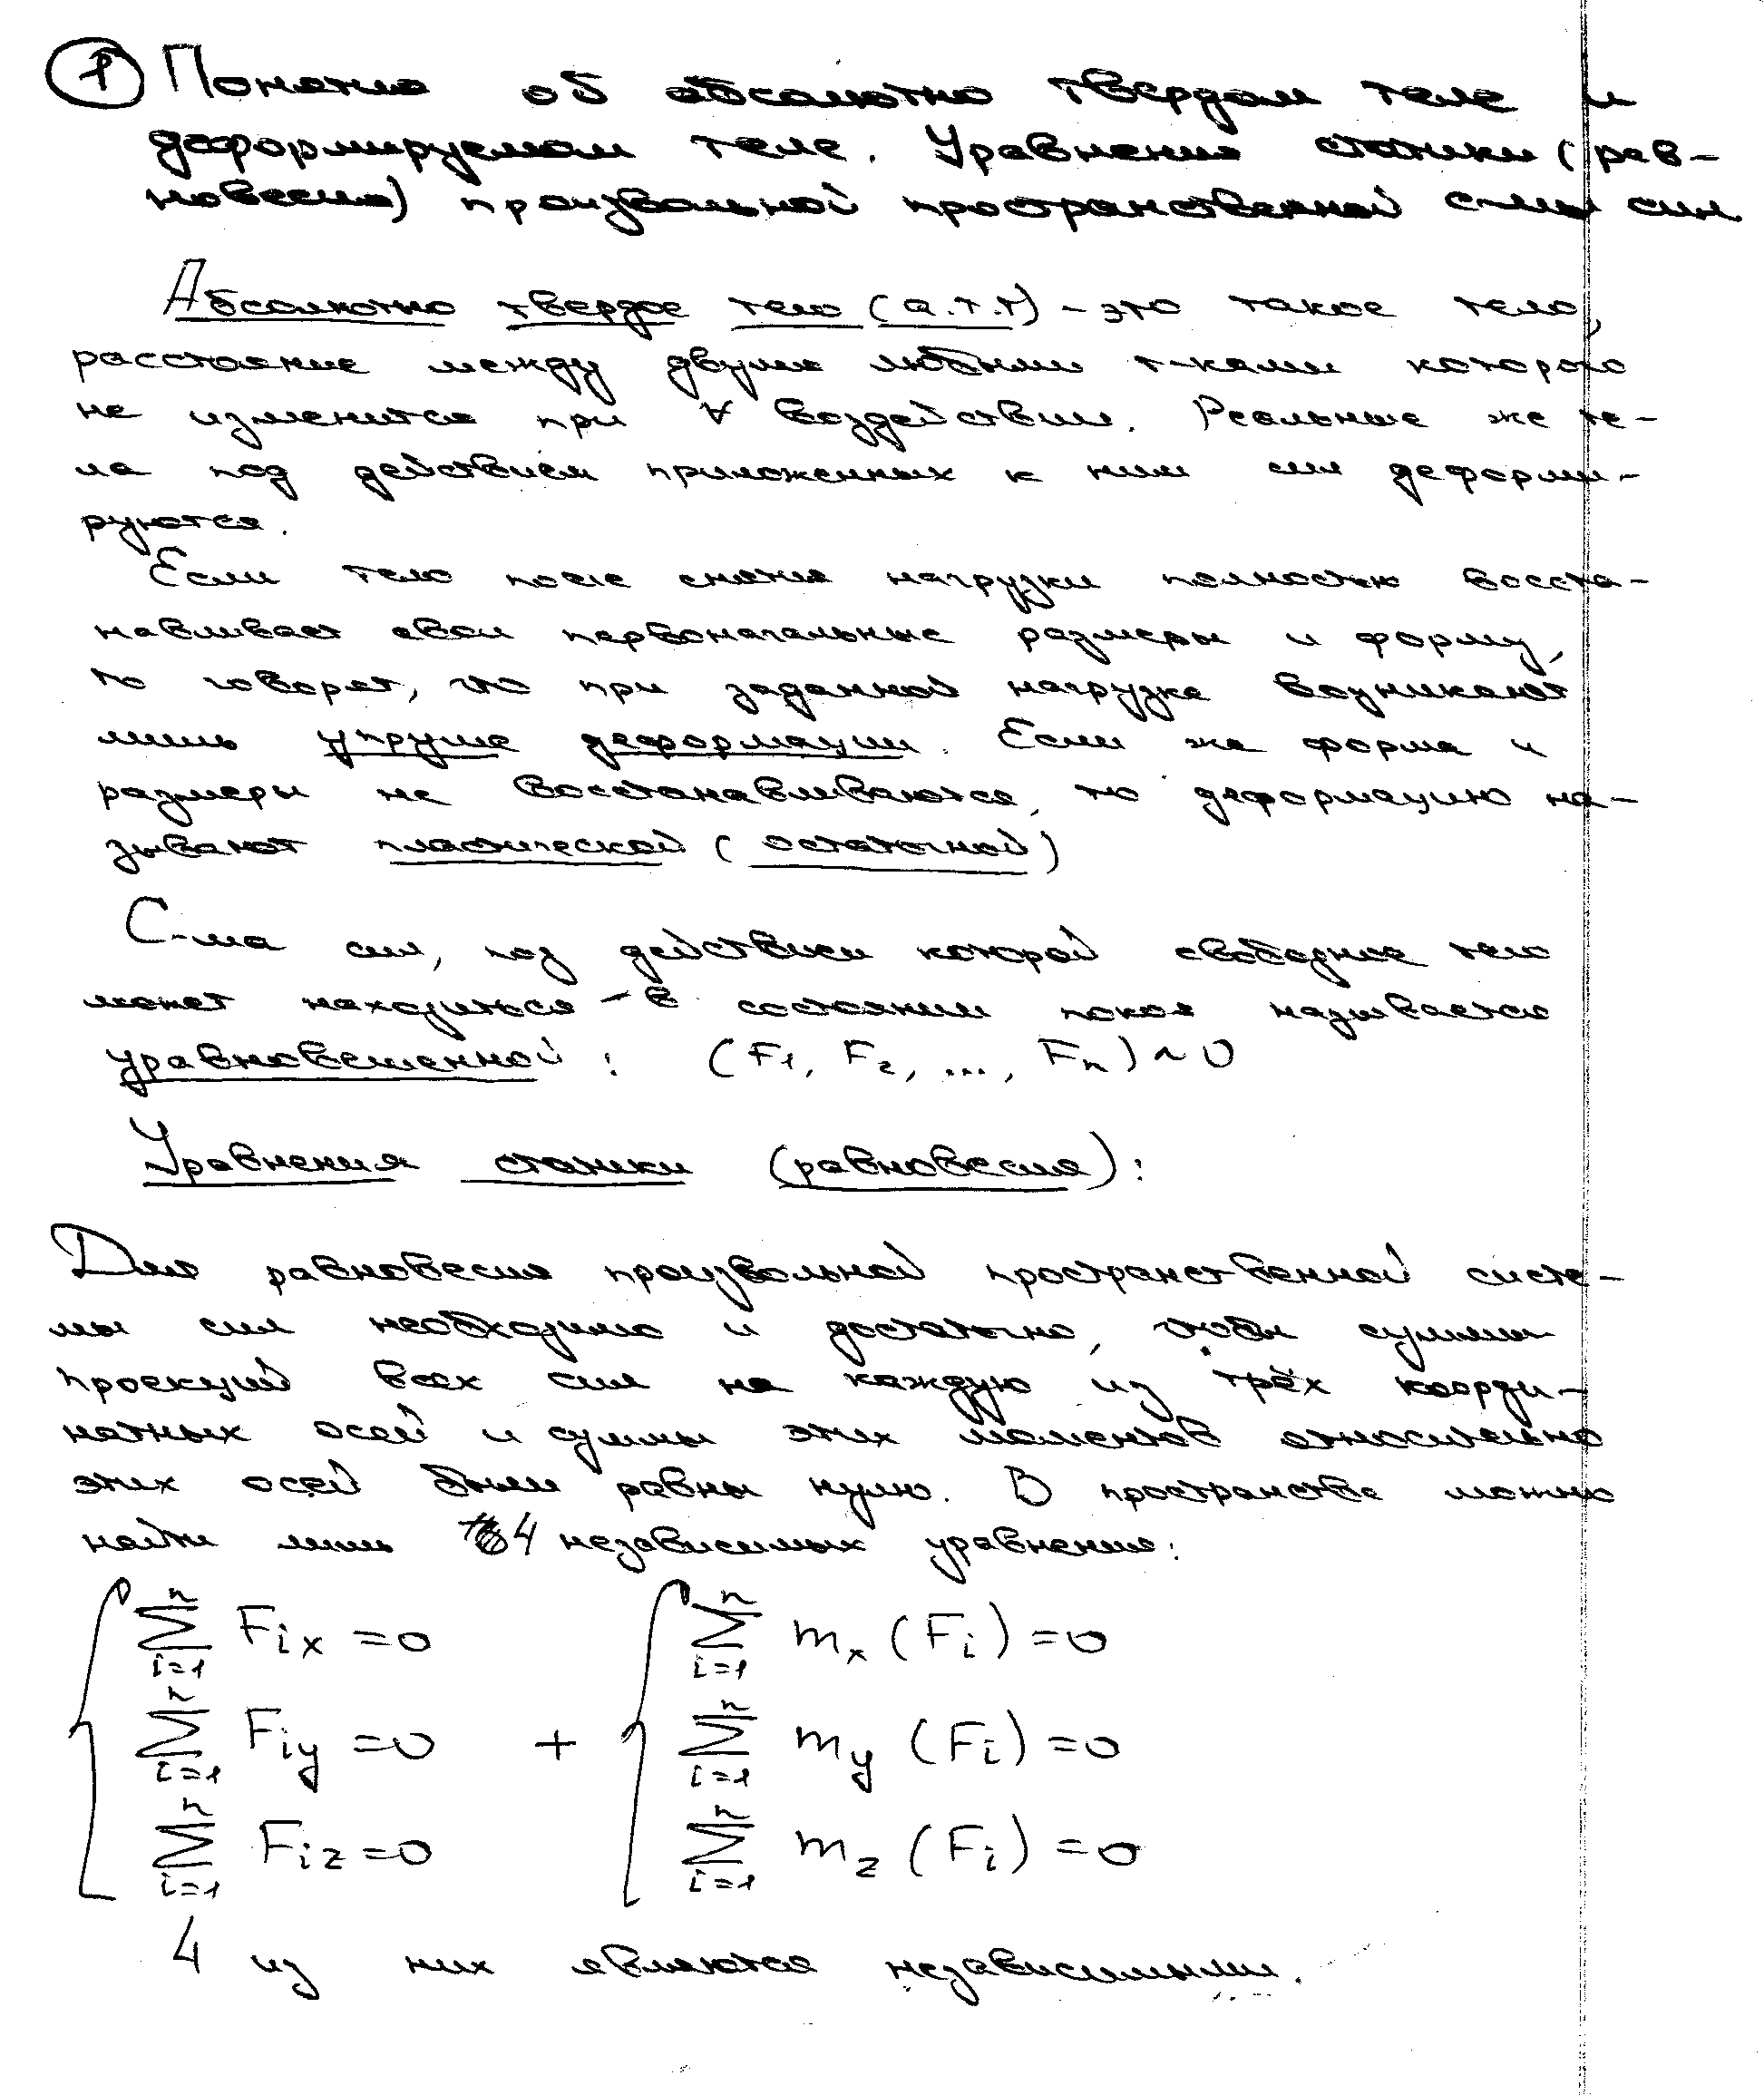 ① Понятие об абсолютно твердом теле и
деформируемом теле. Уравнения статики (рав-
новесия) произвольной пространственной с-мы сил.
Абсолютно твердое тело (а.т.т) - это такое тело,
расстояние между двумя любыми т-ками которого
не изменится при ∀ воздействии. Реальные же те-
ла под действием приложенных к ним сил деформи-
руются.
Если тело после снятия нагрузки полностью восста-
навливает свои первоначальные размеры и форму,
то говорят, что при заданной нагрузке возникают
лишь упругие деформации. Если же форма и
размеры не восстанавливаются, то деформацию на-
зывают пластической (остаточной)
С-ма сил, под действием которой свободное тело
может находиться в состоянии покоя называется
уравновешенной: (F₁, F₂, ..., Fₙ) ~ 0
Уравнения статики (равновесия):
Для равновесия произвольной пространственной систе-
мы сил необходимо и достаточно, чтобы суммы
проекций всех сил на каждую из трёх коорди-
натных осей и суммы этих моментов относительно
этих осей были равны нулю. В пространстве можно
найти лишь 4 независимых уравнения:
∑ⁿᵢ₌₁ Fix = 0 ∑ⁿᵢ₌₁ mx (Fi) = 0
∑ⁿᵢ₌₁ Fiy = 0 + ∑ⁿᵢ₌₁ my (Fi) = 0
∑ⁿᵢ₌₁ Fiz = 0 ∑ⁿᵢ₌₁ mz (Fi) = 0
4 из них являются независимыми.